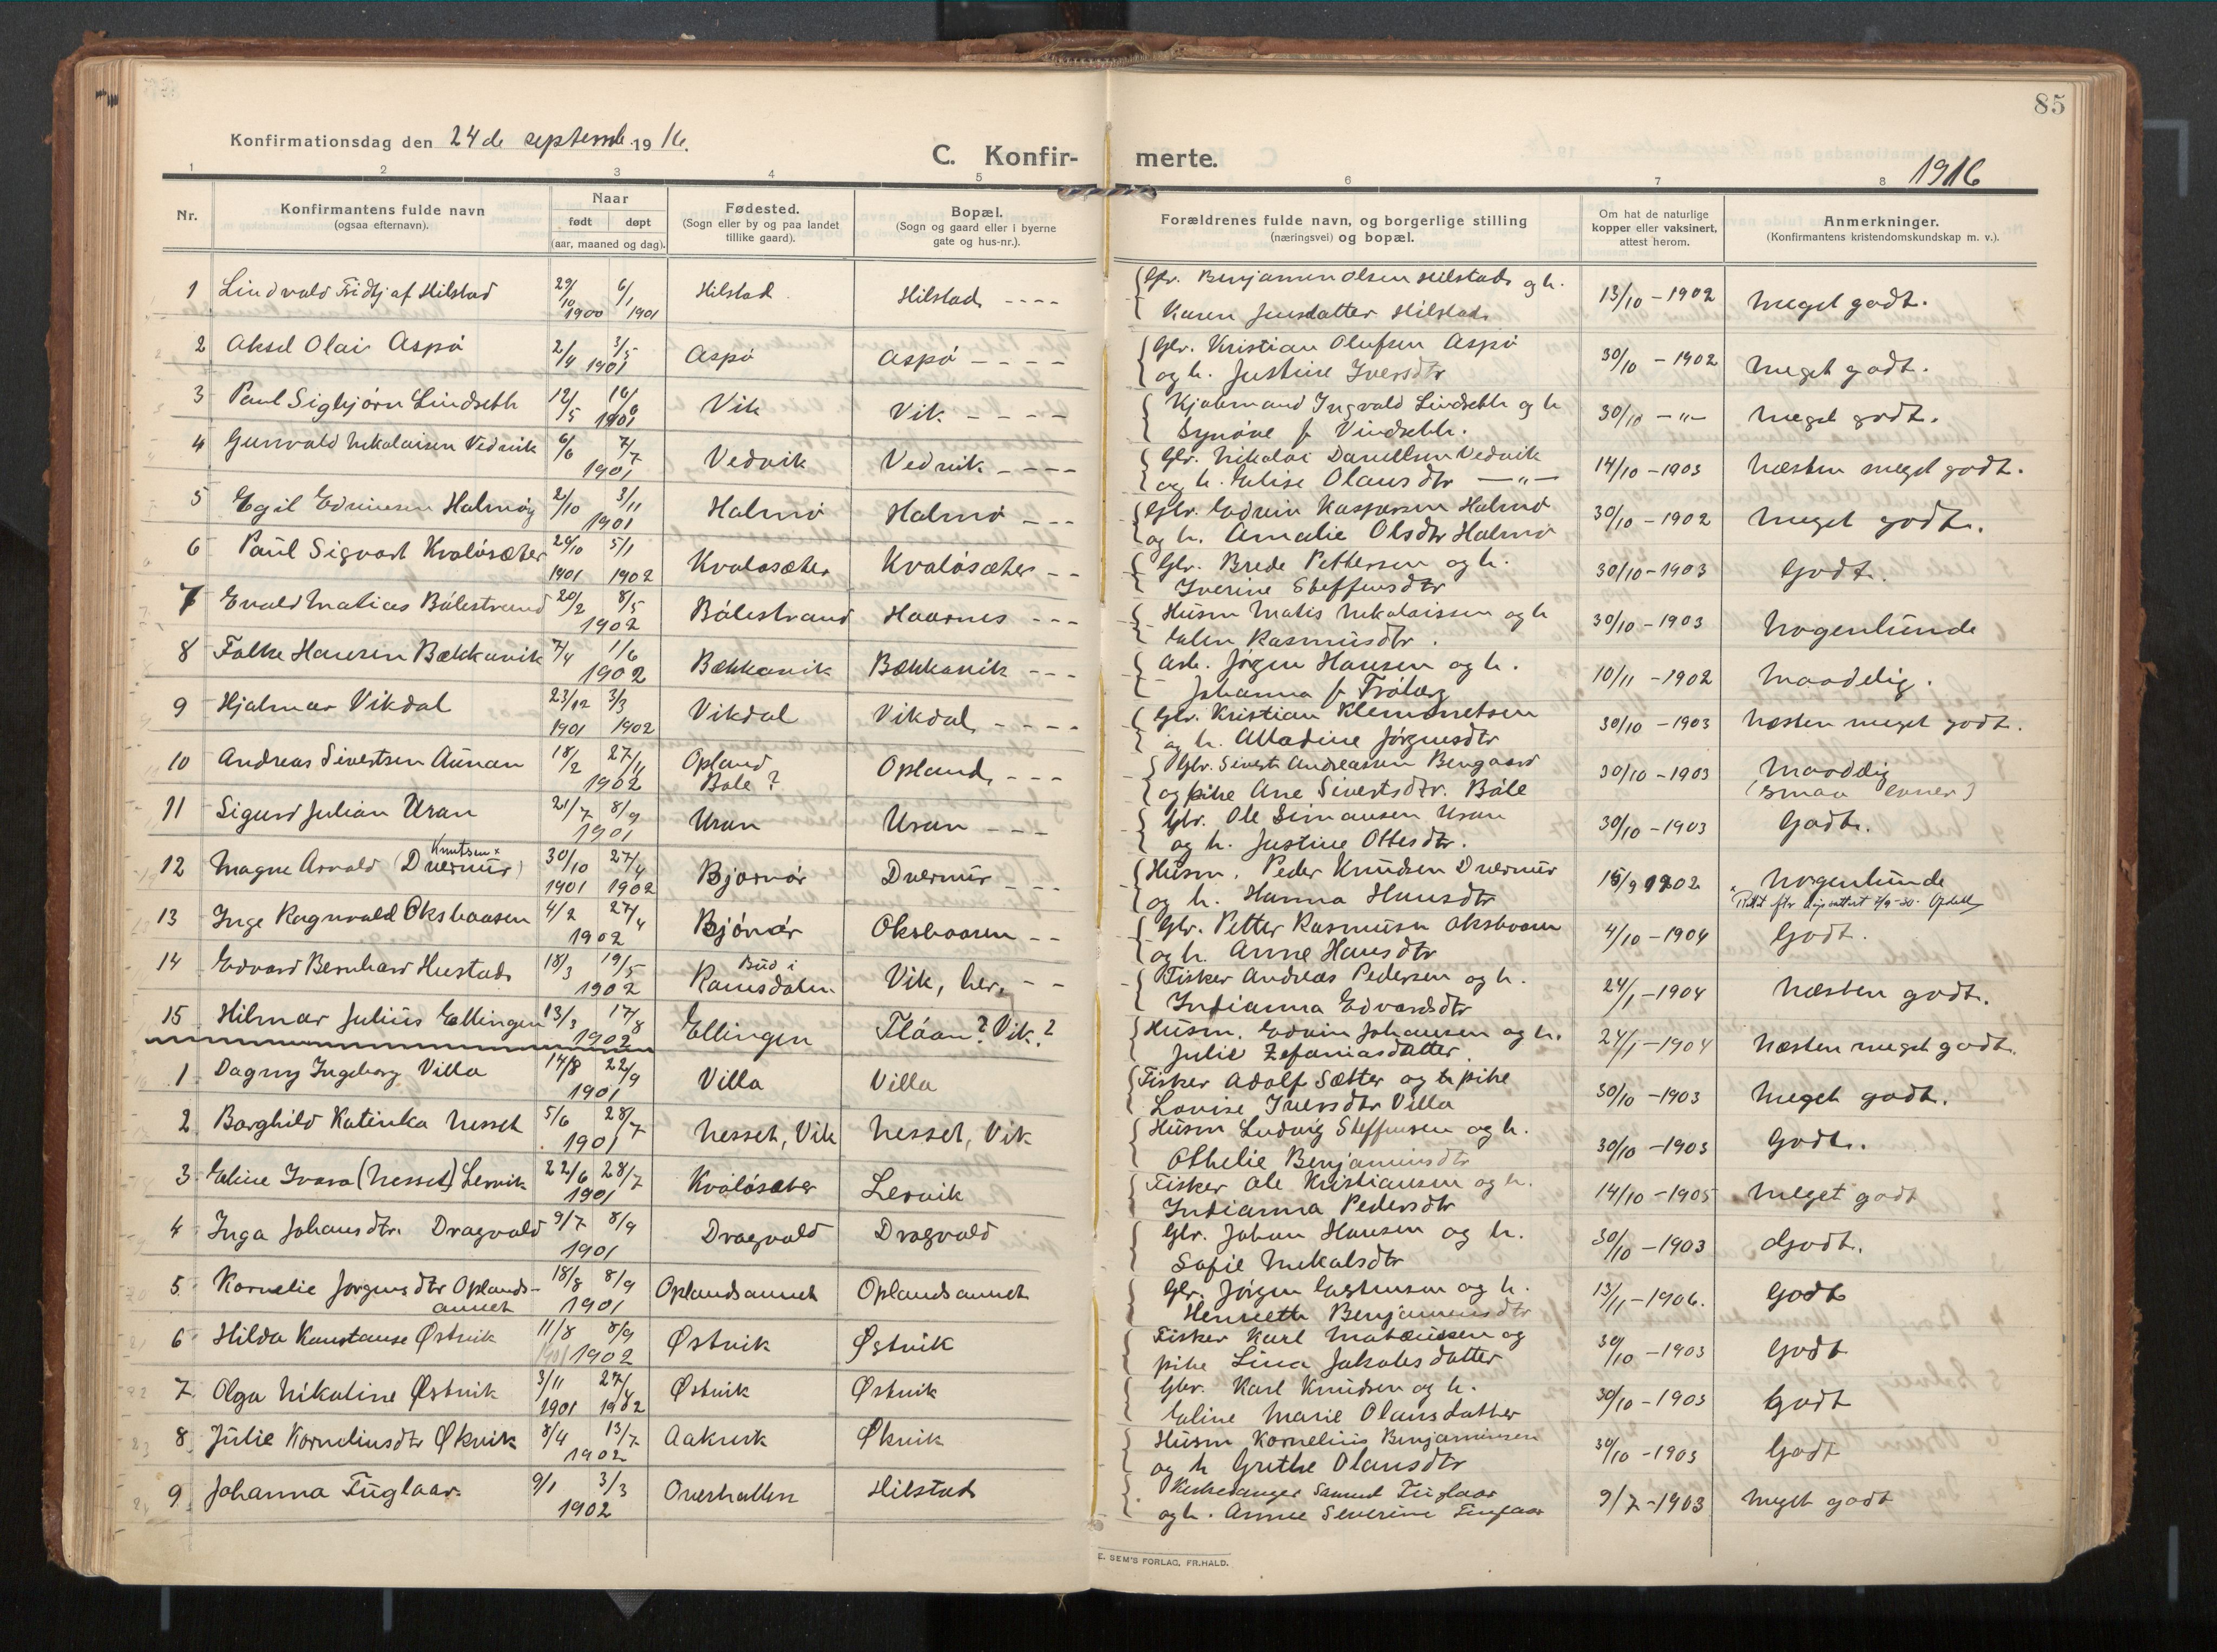 85
Konfirmationsdag den 24de septemb. 1916.
C. Konfir- merte.
1916
1 2 3 4 5 6 7 8
Nr.
Konfirmantens fulde navn
(ogsaa efternavn).
Naar
født døpt
(aar, maaned og dag).
Fødested.
(Sogn eller by og paa landet
tillike gaard).
Bopæl.
(Sogn og gaard eller i byerne
gate og hus-nr.).
Forældrenes fulde navn, og borgerlige stilling
(næringsvei) og bopæl.
Om hat de naturlige
kopper eller vaksinert,
attest herom.
Anmerkninger.
(Konfirmantens kristendomskundskap m. v.).
1 Lindvald Fridtjof Hilstad 29/10 1900 6/1 1901 Hilstad Hilstad ---- Gbr. Benjamin Olsen Hilstad og h.
Karen Jensdatter Hilstad 13/10 - 1902 Meget godt.
2 Aksel Olai Aspø 2/4 3/5 1901 Aspø Aspø ---- Gbr. Kristian Olufsen Aspø
og h. Justine Iversdtr 30/10 - 1902 Meget godt.
3 Paul Sigbjørn Lindseth 12/5 16/6 1901 Vik Vik ---- Kjøbmand Ingvald Lindseth og h
Synøve f Vindseth. 30/10 - " - Meget godt.
4 Gunvald Nikolaisen Vedvik 6/6 7/7 1901 Vedvik Vedvik ---- Gbr. Nikolai Daniellsen Vedvik
og h. Elise Olausdtr - " - 14/10 - 1903 Næsten meget godt.
5 Egil Edvinsen Halmøy 2/10 3/11 1901 Halmø Halmø --- Gbr. Edvin Kaspersen Halmø
og h. Amalie Olsdtr Halmø 30/10 - 1902 Meget godt.
6 Paul Sigvart Kvaløsæter 20/10 1901 5/1 1902 Kvaløsæter Kvaløsæter -- Gbr. Brede Pettersen og h.
Iverine Steffensdtr 30/10 - 1903 Godt.
7 Evald Matias Bålestrand 20/2 8/5 1902 Bålestrand Haarnes --- Husm Matis Nikolaissen og h
Elen Rasmusdtr. 30/10 - 1903 Nogenlunde
8 Falke Hansen Bækkavik 7/4 1/6 1902 Bækkavik Bækkavik --- Arb. Jørgen Hansen og h.
Johanna f Frøberg 10/11 - 1902 Maadelig.
9 Hjalmar Vikdal 23/12 1901 3/3 1902 Vikdal Vikdal ---- Gbr. Kristian Klemmetsen
og h. Alladine Jørgensdtr 30/10 - 1903 Næsten meget godt.
10 Andreas Sivertsen Aunan 18/2 27/11 1902 Opland
Bøle? Opland --- Gbr. Sivert Andreassen Bengaard
og pike Ane Sivertsdtr. Bøle 30/10 - 1903 Maadelig
(smaa evner)
11 Sigurd Julian Uran 21/7 8/9 1901 Uran Uran --- Gbr. Ole Simonsen Uran
og h. Justine Ottesdtr. 30/10 - 1903 Godt.
12 Magne Arvald (Dvermir) Knutsen x 30/10 1901 27/4 1902 Bjørnør Dvermir --- Husm. Peder Knudsen Dvermir
og h. Hanna Hansdtr 15/9 1902 Nogenlunde
13 Inge Ragnvald Okshaasen 4/2 27/4 1902 Bjørnør Okshaasen -- Gbr. Petter Rasmusen Okshaasen
og h. Anne Hansdtr 4/10 - 1904 Godt.
14 Edvard Bernhard Hustad 18/3 19/5 1902 Bud i
Romsdalen Vik, her. -- Fisker Andreas Pedersen og h.
Indianna Edvardsdtr 24/1 - 1904 Næsten godt.
15 Hilmar Julius Ellingen 13/3 17/8 1902 Ellingen Flåan? Vik? Husm. Edvin Johansen og h.
Julie Zefaniasdatter. 24/1 - 1904 Næsten meget godt.
1 Dagny Ingeborg Villa 14/8 22/9 1901 Villa Villa Fisker Adolf Sætter og pike
Lovise Iversdtr Villa 30/10 - 1903 Meget godt.
2 Borghild Katinka Nesset 5/6 28/7 1901 Nesset, Vik Nesset, Vik Husm Ludvig Steffensen og h.
Othelie Benjaminsdtr 30/10 - 1903 Godt.
3 Eline Ivara (Nesset) Lervik 22/6 28/7 1901 Kvaløsæter Lervik Fisker Ole Kristiansen og h.
Indianna Pedersdtr 14/10 - 1905 Meget godt
4 Inga Johansdtr. Dragvold 9/7 8/9 1901 Dragvold Dragvold Gbr. Johan Hansen og h.
Sofie Mikalsdtr 30/10 - 1903 Godt.
5 Kornelie Jørgensdtr Oplands-
annet 18/8 8/9 1901 Oplandsannet Oplandsannet Gbr. Jørgen og h.
Henriette Benjaminsdtr 13/11 - 1906. Godt
6 Hilda Konstanse Østvik 11/8 8/9 1901 1902 Østvik Østvik Fisker Karl Mateussen og
pike Lina Jakobsdatter 30/10 - 1903 Godt
7 Olga Nikoline Østvik 3/11 1901 27/4 1902 Østvik Østvik Gbr. Karl Knudsen og h.
Eline Marie Olausdatter 30/10 - 1903 Godt
8 Julie Korneliusdtr Økvik 8/4 13/7 1902 Aakvik Økvik Husm Kornelius Benjaminsen
og h Grethe Olausdtr 30/10 - 1903 Godt
9 Johanna Fuglaar 9/1 3/3 1902 Overhallen Hilstad Kirkesanger Samuel Fuglaar
og h. Anne Severine Fuglaar 9/7 - 1903 Meget godt
E. SEM'S FORLAG, FR.HALD.